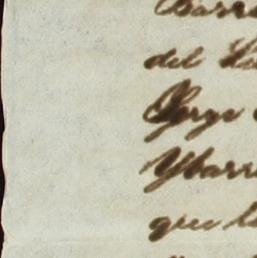 Barr
del
Jorge
Ybarr
que l